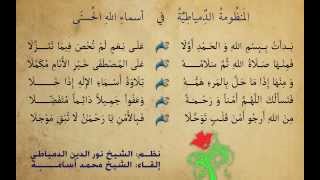 المَنظُومَةُ الدِّمْيَاطِيَّةُ في أسماءِ اللهِ الحُسْنَى
بَدأتُ بِبِسْمِ اللهِ وَ الحَمْدِ أوَّلًا عَلَى نِعَمٍ لَمْ تُحْصَ فِيمَا تَنَزَّلَا
فَمِنهَا صَلاةُ اللهِ ثُمَّ سَلامُهُ عَلَى المُصْطَفَى خَيْرِ الأنَامِ مُكَمِّلَا
وَ مِنْهَا إذَا مَا حَلَّ بالمَرءِ هَمُّهُ تِلاوَةُ أسْمَاءِ الإلَهِ إذَا خَلَا
فَنَسألُكَ اللَّهُمَّ أمْنَاً وَ رَحْمَةً وَعَفْواً جَمِيلاً دَائِماً مُتَفَضِّلَا
مِنَ اللهِ أرجُو أمْنَ قَلْبٍ تَوَجَّلَا فَبِالأمْنِ يَا رَحْمَنُ لَا تُبْقِ مَوْجِلَا
نظم: الشيخ نور الدين الدمياطي
إلقاء: الشيخ محمد أسامة